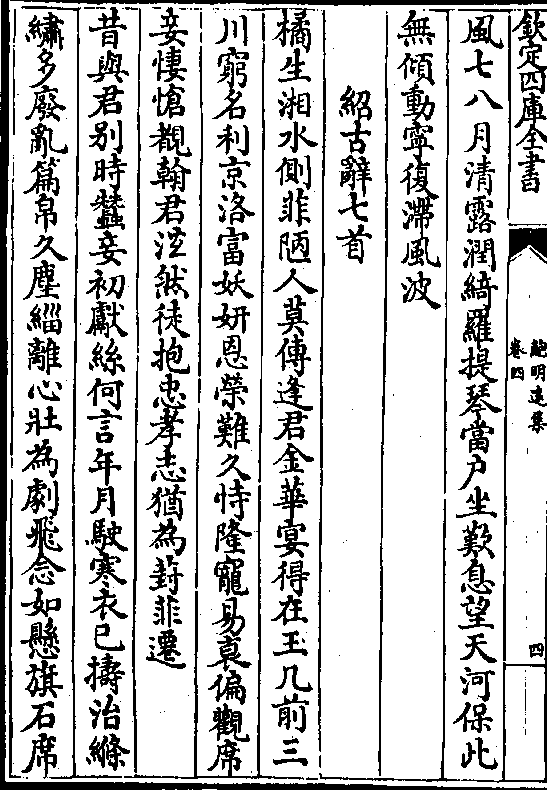 欽定四庫全書
鮑明遠集
卷四
四
風七八月清露潤綺羅提琴當户坐歎息望天河保此
無傾動寧復滯風波
紹古辭七首
橘生湘水側菲陋人莫傳逢君金華宴得在玉几前三
川窮名利京洛富妖妍恩榮難久恃隆寵易衰偏觀席
妾悽愴覩翰君泫然徒抱忠孝志猶為葑菲遷
昔與君别時蠶妾初獻絲何言年月駛寒衣已擣治絛
繡多廢亂篇帛久塵緇離心壯為劇飛念如懸旗石席